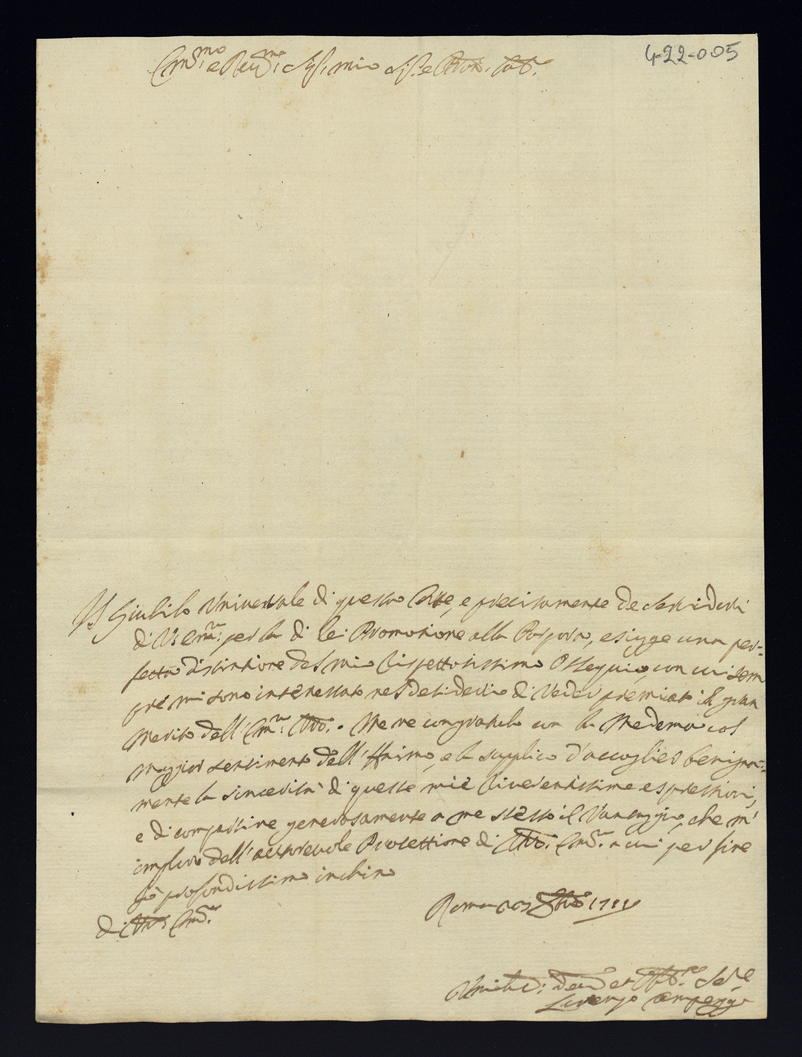 422-005
Em.mo e Rev.mo Sig. mio Sig.e
Il Giubilo Universale di questa Corte, e precisamente de Servidori
di V: Em.za: per la di lei Promozione alla Porpora, esigge una per-
fetta distinzione del mio Rispettosissimo Ossequio, con cui sem
pre mi sono interessato nel desiderio di Veder premiato il gran
Merito dell'Em.za V.ra. Me ne congratulo con la Medema col
maggior sentimento dell'Animo, e la supplico d'accoglier benigna-
mente la sincerità di queste mie Riverentissime espressioni,
e di compartire generosamente a me stesso il Vantaggio, che m'
imploro dell'autorevole Protettione di V.ra Em.za a cui per fine
fò profondissimo inchino
di V.ra Em.za
Roma
Lorenzo Campeggi